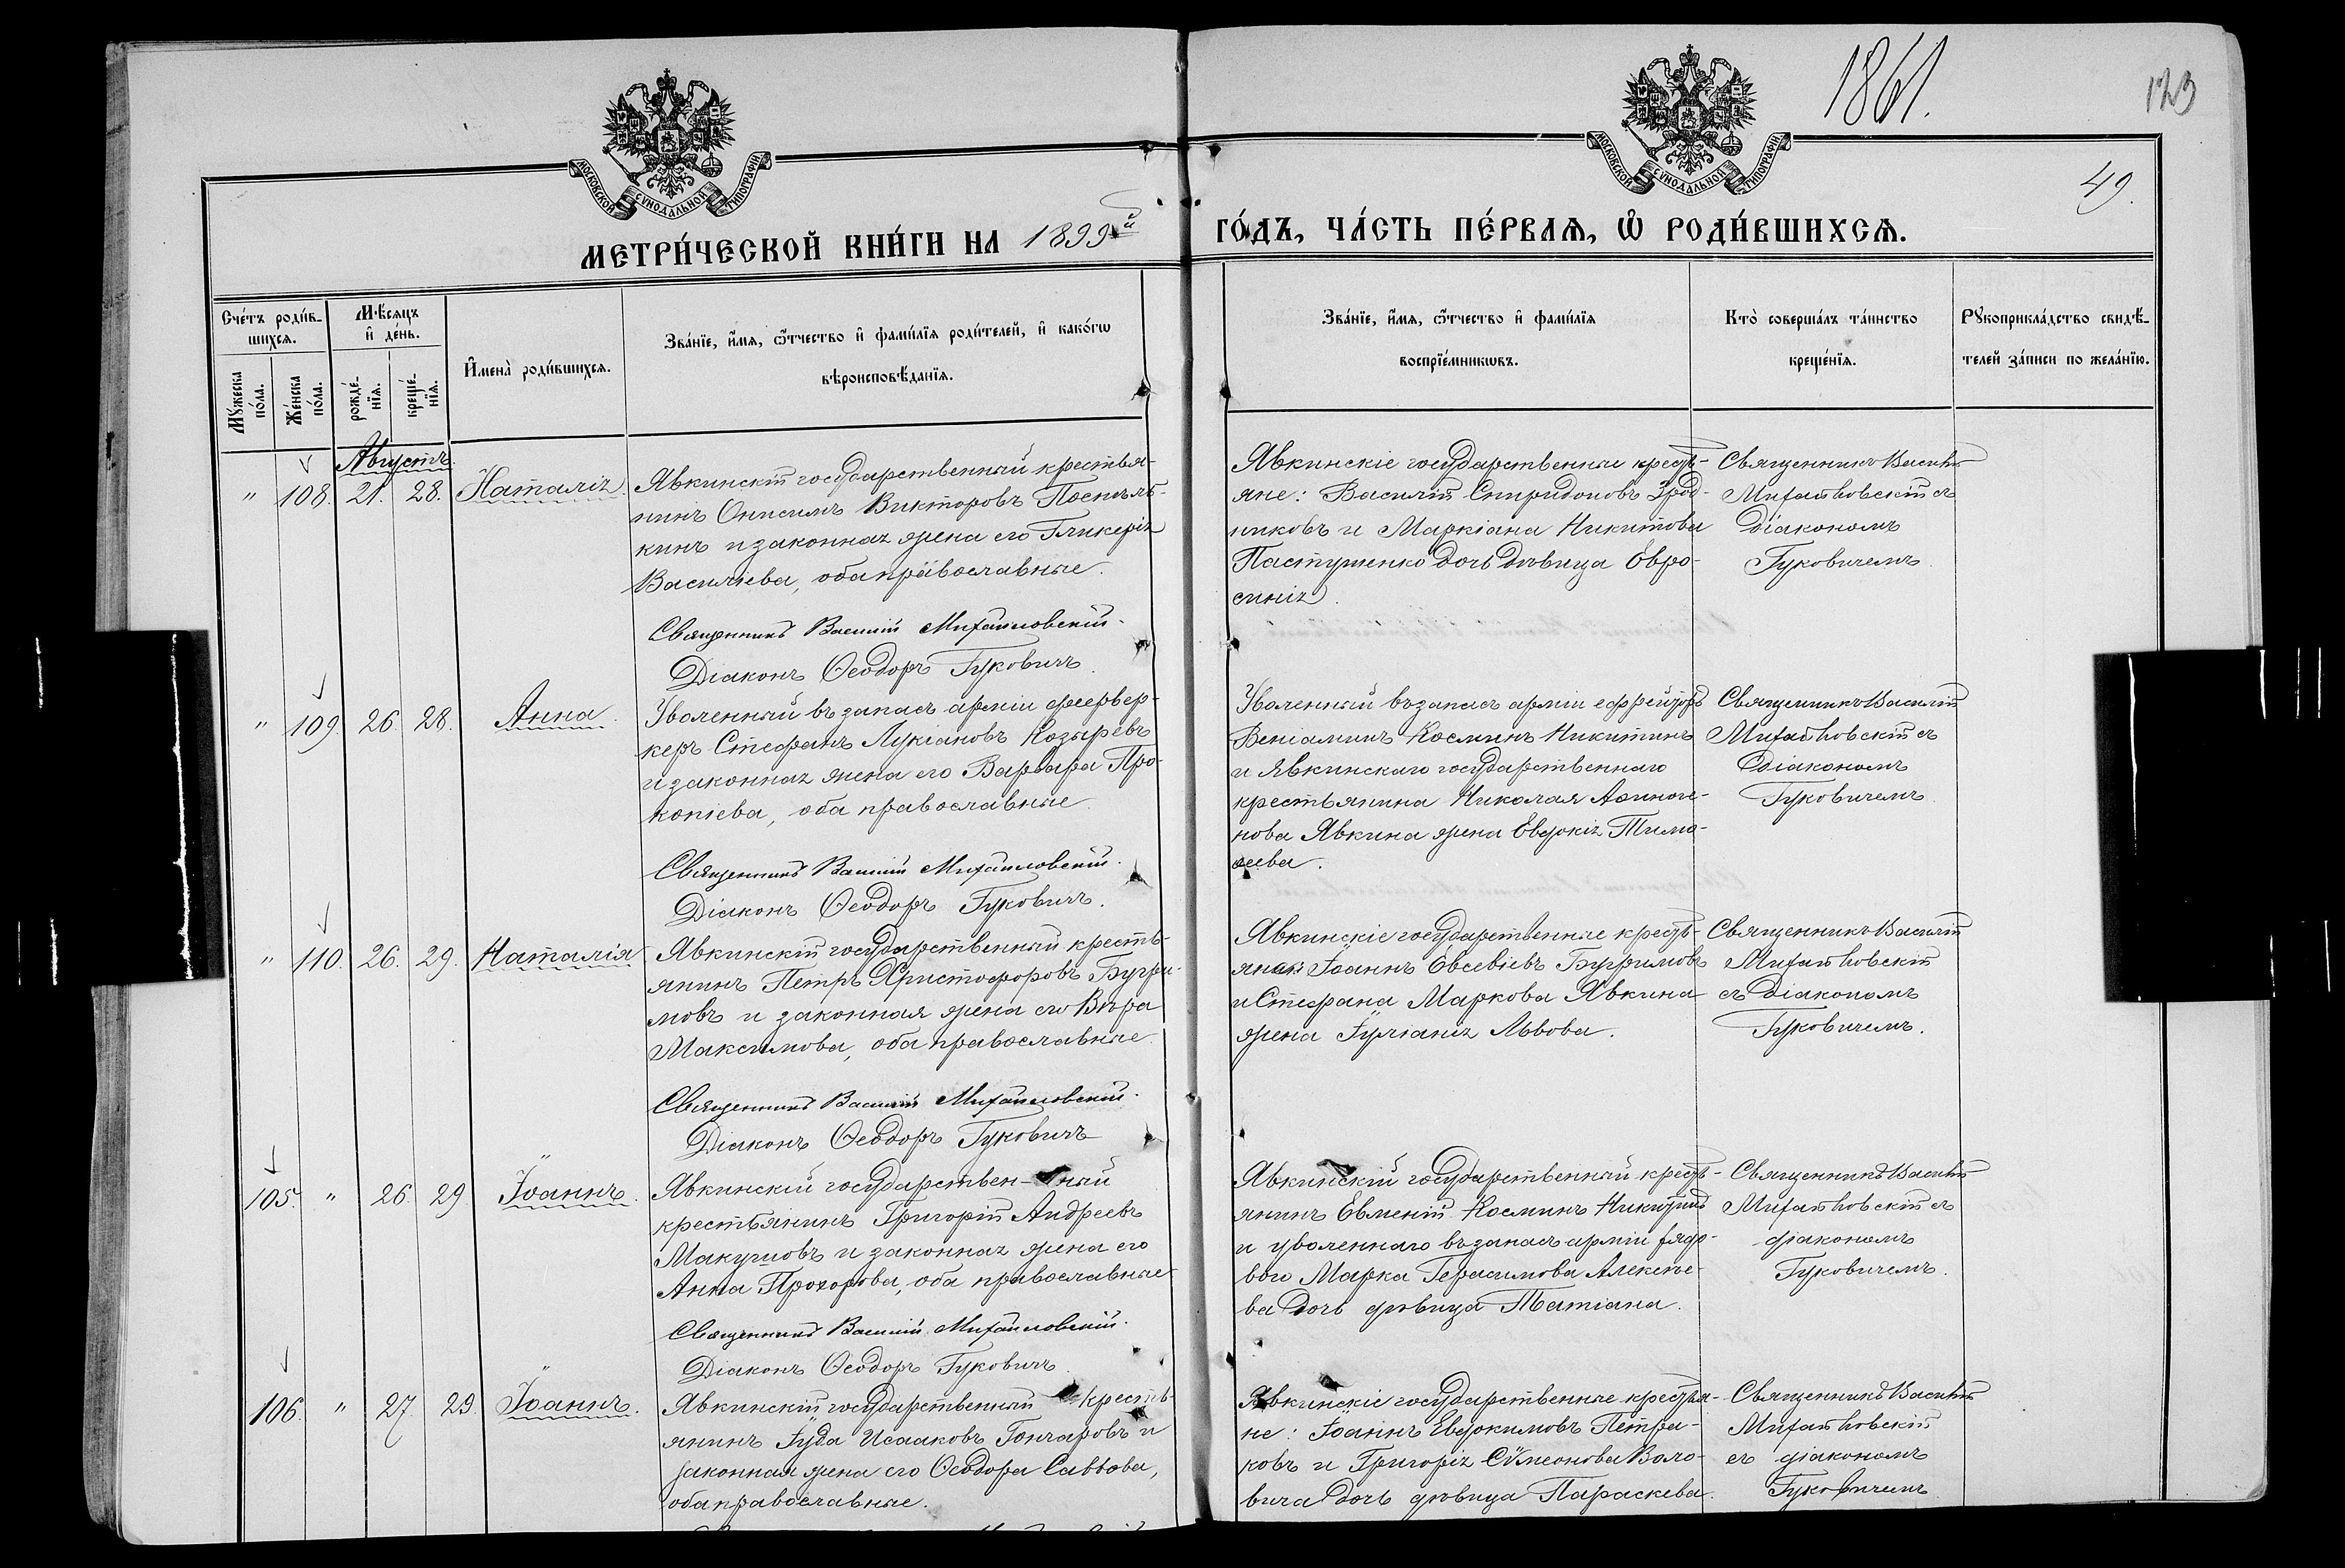 1861.
123
49.
МОСКОВСКОЙ СѴНОДАЛЬНОЙ ТИПОГРАФІИ
МОСКОВСКОЙ СѴНОДАЛЬНОЙ ТИПОГРАФІИ
МЕТРИ́ЧЕСКОЙ КНИ́ГИ НА 1899й ГО́ДЪ, ЧА́СТЬ ПЕ́РВАѦ, Ѽ РОДИ́ВШИХСѦ.
Сче́тъ роди́в-
шихсѧ.
Мѣ́сѧцъ
и҆ де́нь.
Мꙋ́жеска
по́ла.
Же́нска
по́ла.
рожде́-
нїѧ.
креще́-
нїѧ.
И҆мена̀ роди́вшихсѧ.
Зва́нїе, и҆́мѧ, ѻ҆́тчество и҆ фами́лїѧ роди́телей, и҆ како́гѡ
вѣроисповѣ́данїѧ.
Зва́нїе, и҆́мѧ, ѻ҆́тчество и҆ фами́лїѧ
воспрїе́мникѡвъ.
Кто̀ соверша́лъ та́инство
креще́нїѧ.
Рꙋкоприкла́дство свидѣ́-
телей за́писи по жела́нїю.
Августъ.
" 108. 21. 28. Наталія.
Явкинскій государственный крестья-
нинъ Онисимъ Викторовъ Поспѣл-
кинъ и законная жена его Гликерія
Василіева, оба православные.
Священникъ Василій Михайловскій.
Діаконъ Ѳеодоръ Гуковичъ.
Явкинскіе государственные кресть-
яне: Василій Спиридоновъ Зрод-
никовъ и Маркіана Никитова
Пастушенко дочь дѣвица Евро-
синія.
Священникъ Василій
Михайловскій съ
діакономъ
Гуковичемъ.
" 109. 26. 28. Анна.
Уволенный въ запасъ арміи феервер-
керъ Стефанъ Лукіановъ Козыревъ
и законная жена его Варвара Про-
копіева, оба православные.
Священникъ Василій Михайловскій.
Діаконъ Ѳеодоръ Гуковичъ.
Уволенный въ запасъ арміи ефрейторъ
Веніаминъ Косминъ Никитинъ
и Явкинскаго государственнаго
крестьянина Николая Аѳиноге-
нова Явкина жена Евдокія Тимо-
ѳеева.
Священникъ Василій
Михайловскій съ
діакономъ
Гуковичемъ.
" 110. 26. 29. Наталія
Явкинскій государственный кресть-
янинъ Петръ Христофоровъ Бугри-
мовъ и законная жена его Вѣра
Максимова, оба православные.
Священникъ Василій Михайловскій.
Діаконъ Ѳеодоръ Гуковичъ
Явкинскіе государственные кресть-
яне: Іоаннъ Евсевіевъ Бугримовъ
и Стефана Маркова Явкина
жена Іуліанія Львова.
Священникъ Василій
Михайловскій
съ діакономъ
Гуковичемъ.
105. " 26. 29. Іоаннъ.
Явкинскій государствен-ный
крестьянинъ Григорій Андреевъ
Макушовъ и законная жена его
Анна Прохорова, оба православные
Священникъ Василій Михайловскій.
Діаконъ Ѳеодоръ Гуковичъ.
Явкинскій государственный кресть-
янинъ Евменій Косминъ Никитинъ
и уволеннаго въ запасъ арміи рядо-
вого Марка Герасимова Алексѣе-
ва дочь дѣвица Татіана.
Священникъ Василій
Михайловскій съ
діакономъ
Гуковичемъ.
106. " 27. 29. Іоаннъ.
Явкинскій государственный кресть-
янинъ Іуда Исааковъ Гончаровъ и
законная жена его Ѳеодора Саввова,
оба православные.
Явкинскіе государственные крестья-
не: Іоаннъ Евдокимовъ Петра-
ковъ и Григорія Сѵмеонова Воло-
вича дочь дѣвица Параскева.
Священникъ Василій
Михайловскій
съ діакономъ
Гуковичемъ